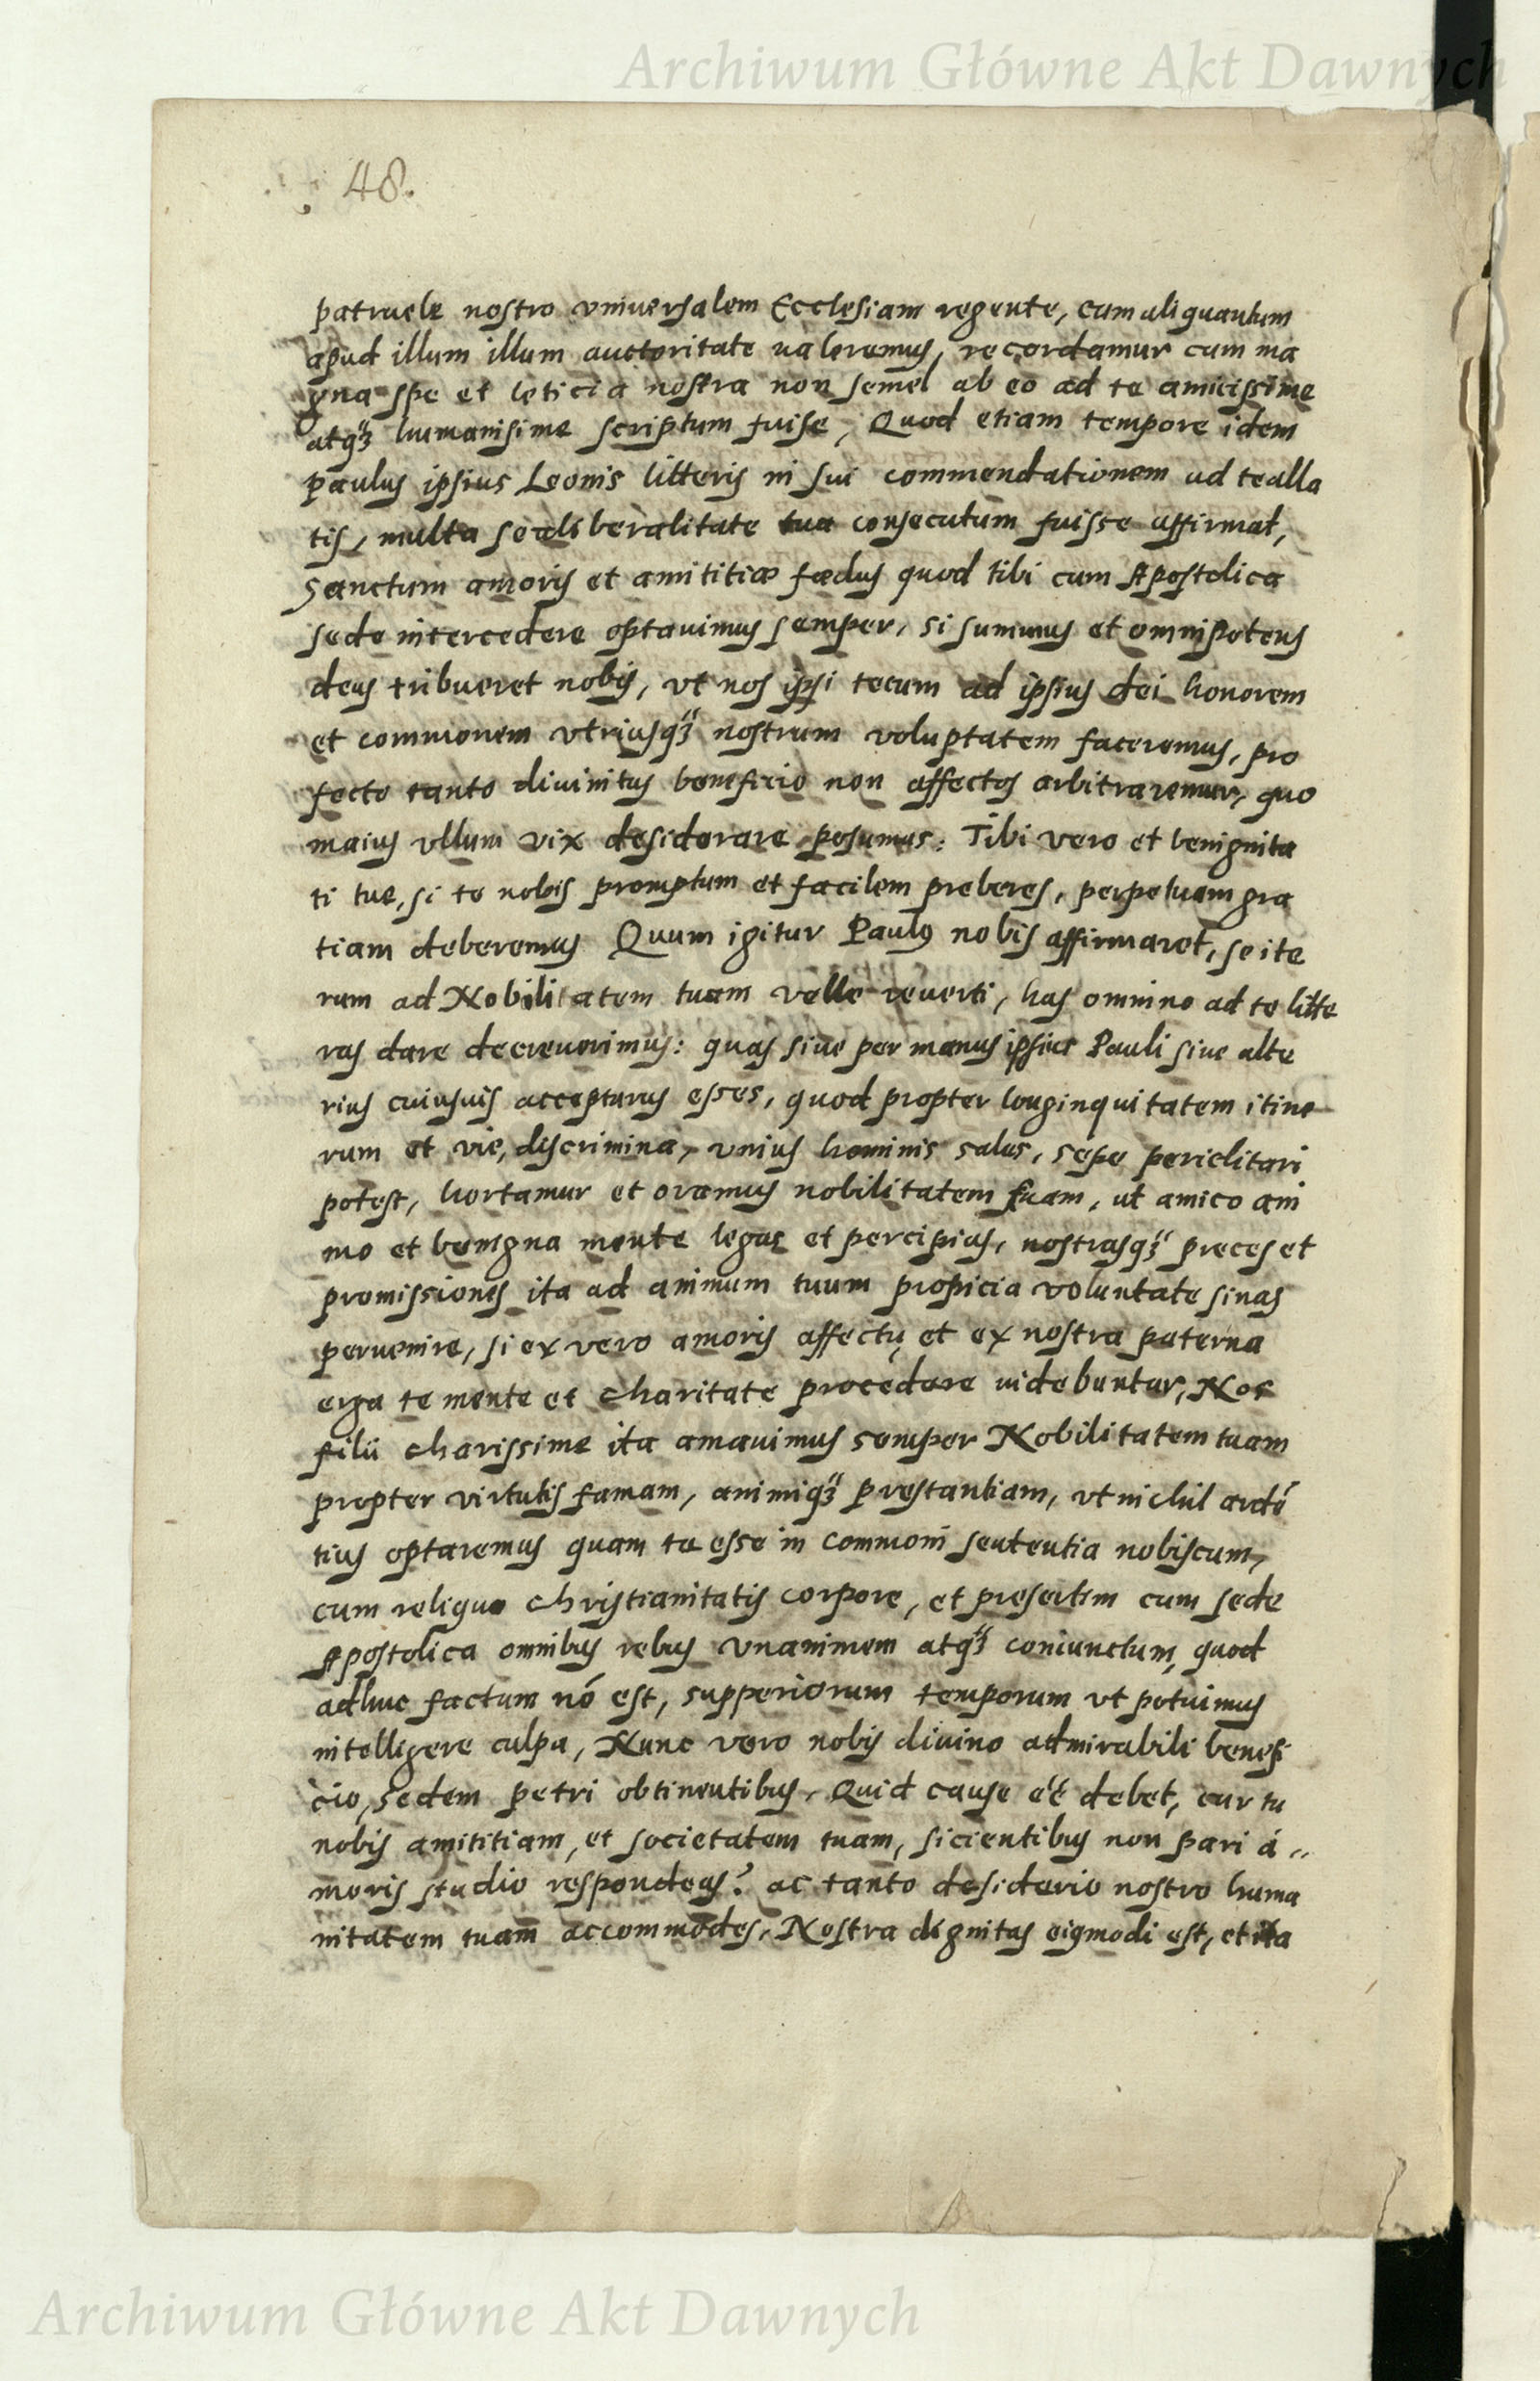 Archiwum Główne Akt Dawnych
48.
patruele nostro vniuersalem Ecclesiam regente, cum aliquantum
apud illum illum auctoritate ualeremus, recordamur cum ma
gna spe et leticia nostra non semel ab eo ad te amicissime
atq3 humanisime scriptum fuise, Quod etiam tempore idem
paulus ipsius Leonis litteris in sui commendationem ad te alla
tis, multa se a liberalitate tua consecutum fuisse affirmat,
Sanctum amoris et amititiæ fœdus quod tibi cum Apostolica
sede intercedere optauimus semper, si summus et omnipotens
deus tribueret nobis, vt nos ipsi tecum ad ipsius dei honorem
et commonem vtriusq3 nostrum voluptatem faceremus, pro
fecto tanto diuinitus beneficio non affectos arbitraremur, quo
maius vllum vix desiderare posumus: Tibi vero et benignita
ti tue, si te nobis promptum et facilem preberes, perpetuam gra
tiam deberemus Quum igitur Paulus nobis affirmaret, se ite
rum ad Nobilitatem tuam velle reuerti, has omnino ad te litte
ras dare decreuerimus: quas siue per manus ipsius Pauli siue alte
rius cuiusuis accepturus esses, quod propter longinquitatem itine
rum et vie, discrimina, vnius hominis salus, sepe periclitari
potest, hortamur et oramus nobilitatem tuam, ut amico ani
mo et benigna mente legas et percipias, nostrasq3 preces et
promissiones ita ad animum tuum propicia voluntate sinas
peruenire, si ex vero amoris affectu et ex nostra paterna
erga te mente et charitate procedere uidebuntur, Nos
filii charissime ita amauimus semper Nobilitatem tuam
propter virtutis famam, animiq3 prestantiam, vt nichil ardé
tius optaremus quam te esse in commoni sententia nobiscum,
cum reliquo christianitatis corpore, et presertim cum sede
Apostolica omnibus rebus vnanimem atq3 coniunctum, quod
adhuc factum nó est, supperiorum temporum vt potuimus
intelligere culpa, Nunc vero nobis diuino admirabili benefi
cio, sedem petri obtinentibus, Quid cause eé debet, cur tu
nobis amititiam, et societatem tuam, sicientibus non pari á,,
moris studio respondeas? ac tanto desiderio nostro huma
nitatem tuam accommodes, Nostra dignitas eigmodi est, et ita
Archiwum Główne Akt Dawnych